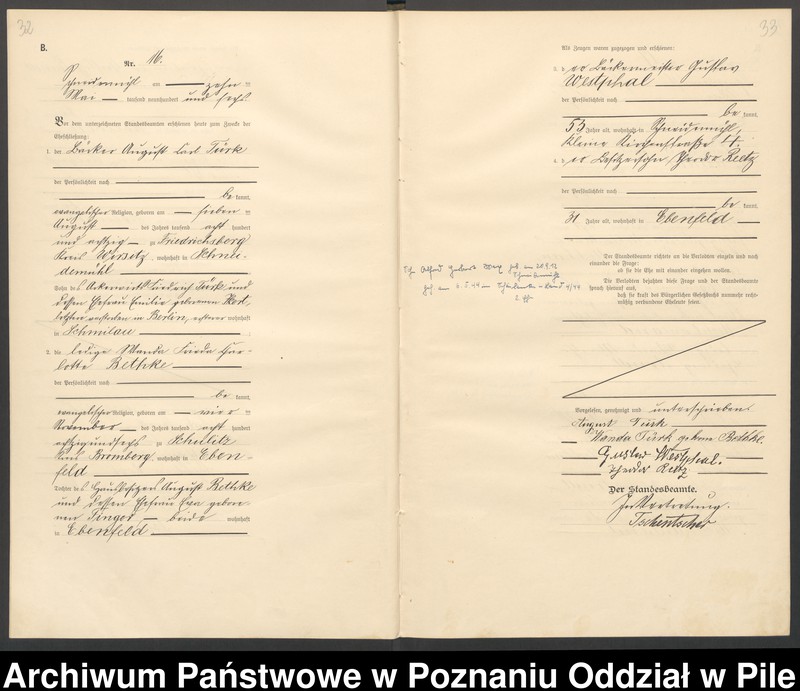 32
B.
Nr. 16.
Schneidemühl am zehnten
Mai tausend neunhundert und sechs.
Vor dem unterzeichneten Standesbeamten erschienen heute zum Zwecke der
Eheschließung:
1. der Bäcker August Carl Türk
der Persönlichkeit nach
be kannt,
evangelischer Religion, geboren am sieben ten
August des Jahres tausend acht hundert
und achtzig zu Friedrichsberg
Kreis Wirsitz, wohnhaft in Schnei-
demühl
Sohn des Ackerwirts Friedrich Türk und
dessen Ehefrau Emilie geborenen
letztere verstorben in Berlin, ersterer wohnhaft
in Schmilau
2. die ledige Wanda Frieda Char-
lotte Bethke
der Persönlichkeit nach
be kannt,
evangelischer Religion, geboren am vier ten
November des Jahres tausend acht hundert
achtzigundsechs zu Schulitz
Kreis Bromberg, wohnhaft in Eben-
feld
Tochter des Hausbesitzers August Bethke
und dessen Ehefrau Eva gebore-
nen Finger beide wohnhaft
in Ebenfeld
33
Als Zeugen waren zugezogen und erschienen:
3. der Bäckermeister Gustav
Westphal
der Persönlichkeit nach
be kannt,
53 Jahre alt, wohnhaft in Schneidemühl,
kleine Kirchenstraße 4.
4. der Besitzersohn Theodor Reetz
der Persönlichkeit nach
be kannt,
31 Jahre alt, wohnhaft in Ebenfeld
Der Standesbeamte richtete an die Verlobten einzeln und nach
einander die Frage:
ob sie die Ehe mit einander eingehen wollen.
Die Verlobten bejahten diese Frage und der Standesbeamte
sprach hierauf aus,
daß sie kraft des Bürgerlichen Gesetzbuchs nunmehr recht-
mäßig verbundene Eheleute seien.
Vorgelesen, genehmigt und unterschrieben
August Türk
Wanda Türk geborene Bethke.
Gustav Westphal.
Theodor Reetz
Der Standesbeamte.
In Vertretung.
Tschentscher
Archiwum Państwowe w Poznaniu Oddział w Pile